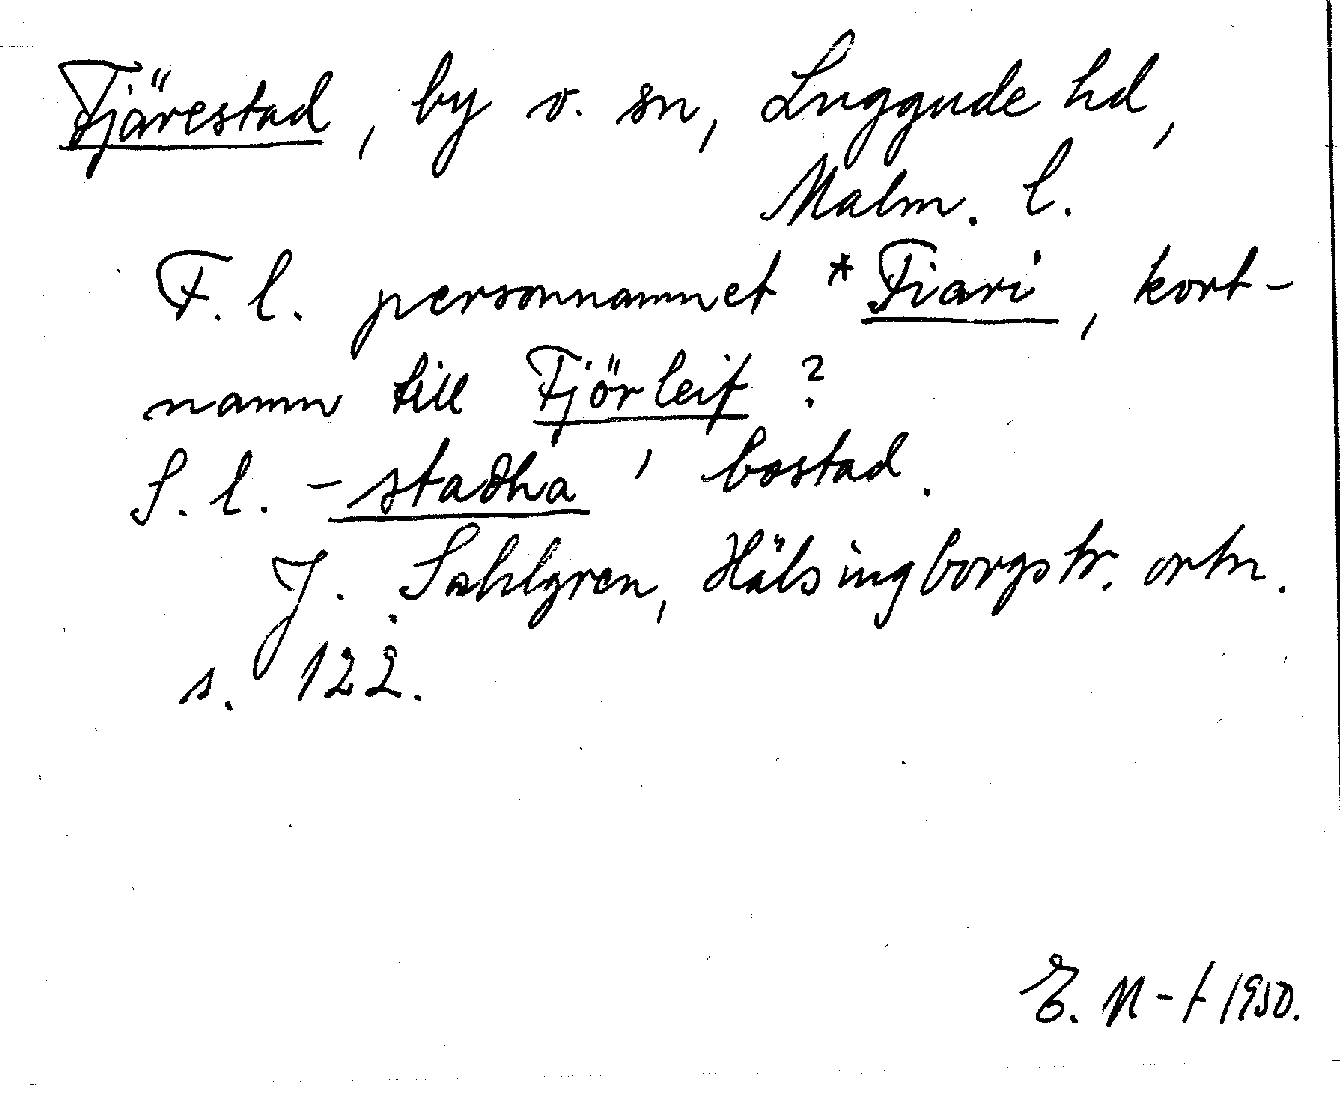 Fjärestad, by o. sn, Luggude hd,
Malm. l.
F. l. personnamnet *Fiari, kort-
namn till Fjörleif ?
S. l. -stadha, bostad.
J. Sahlgren, Hälsingborgstr. ortn.
s. 122.
E. N-t 1950.